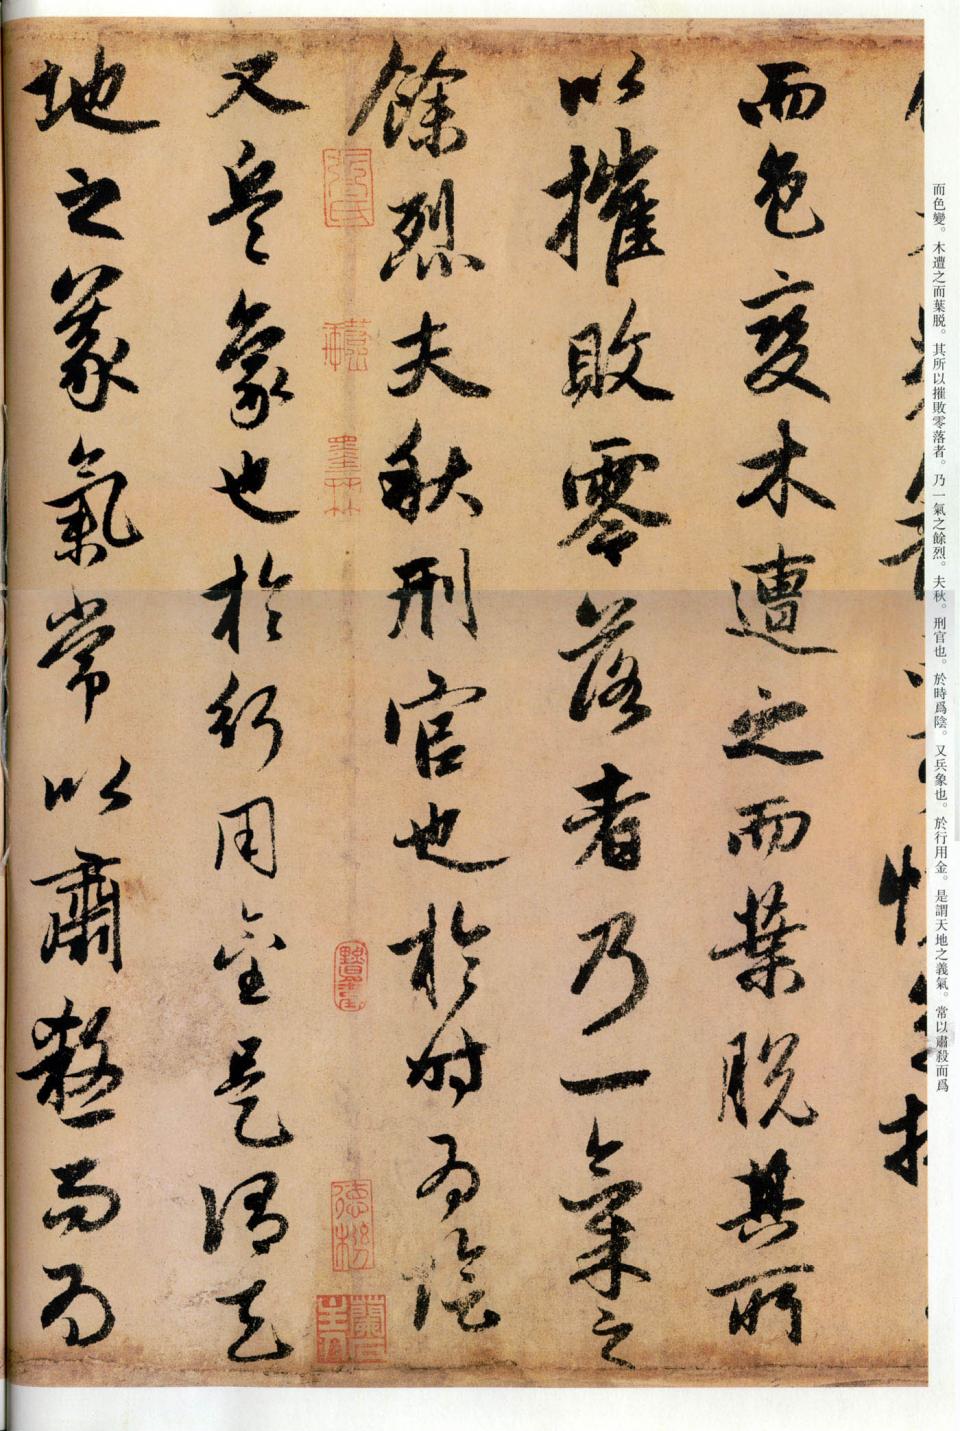 而色變。木遭之而葉脱。其所以摧敗零落者。乃一氣之餘烈。夫秋。刑官也。於時爲陰。又兵象也。於行用金。是謂天地之義氣。常以肅殺而爲
而色變木遭之而葉脱其所
以摧敗零落者乃一氣之
餘烈夫秋刑官也於时為陰
又兵象也於行用金是謂天
地之義氣常以肅殺而為